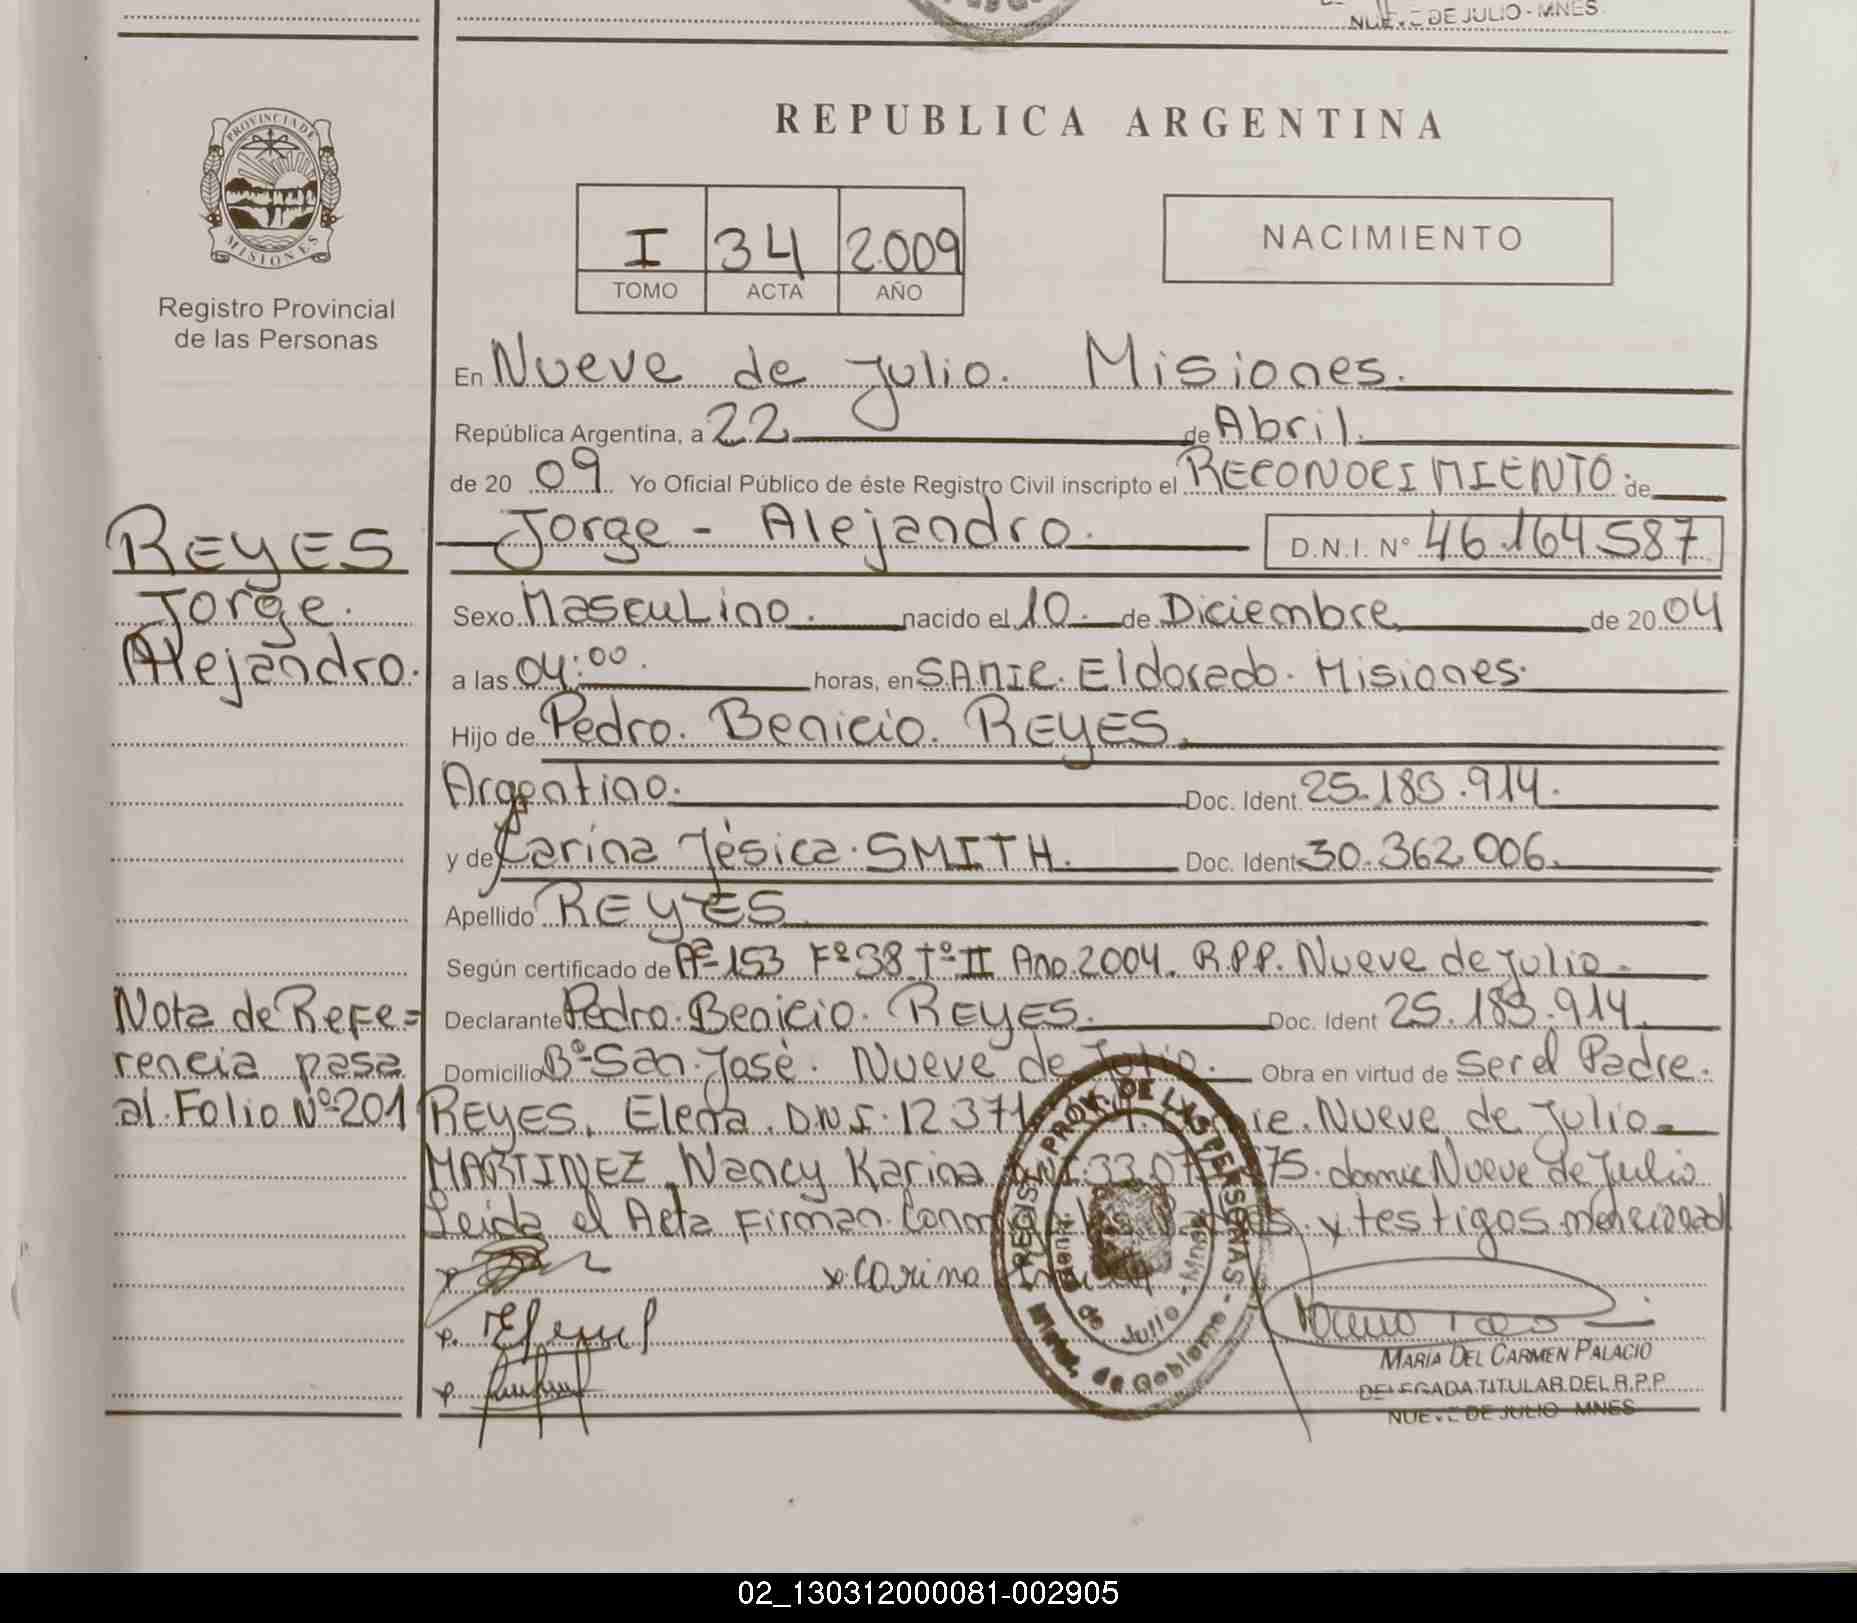 NUEVE DE JULIO - MNES
PROVINCIA DE
MISIONES
Registro Provincial
de las Personas
REPUBLICA ARGENTINA
I 34 2009
TOMO ACTA AÑO
NACIMIENTO
En Nueve de Julio. Misiones.
República Argentina, a 22 de Abril.
de 20 09 Yo Oficial Público de éste Registro Civil inscripto el RECONOCIMIENTO de
REYES
Jorge.
Alejandro.
Jorge - Alejandro. D.N.I. Nº 46.164.587
Sexo Masculino. nacido el 10. de Diciembre de 20 04
a las 04:00. horas, en SAMIC. Eldorado. Misiones.
Hijo de Pedro. Benicio. REYES.
Argentino. Doc. Ident. 25.183.914.
y de Carina Jésica. SMITH. Doc. Ident. 30.362.006.
Apellido REYES
Según certificado de Aº 153 Fº 38 Tº II Año 2004. R.P.P. Nueve de Julio.
Nota de Refe=
rencia pasa
al Folio Nº 201
Declarante Pedro. Benicio. REYES. Doc. Ident 25.183.914
Domicilio Bº San José. Nueve de Julio. Obra en virtud de ser el Padre.
REYES, Elena. DNI. 12.371 Nueve de Julio
MARTINEZ, Nancy Karina DNI. 33.07 75. domic Nueve de Julio
Leída el Acta Firman Conm los Padres y testigos mencionad
x Carina
REGIST. PROV. DE LAS PERSONAS
Nueve de Julio - Mnes
Minist. de Gobierno
MARIA DEL CARMEN PALACIO
DELEGADA TITULAR DEL R.P.P.
NUEVE DE JULIO MNES
02_130312000081-002905